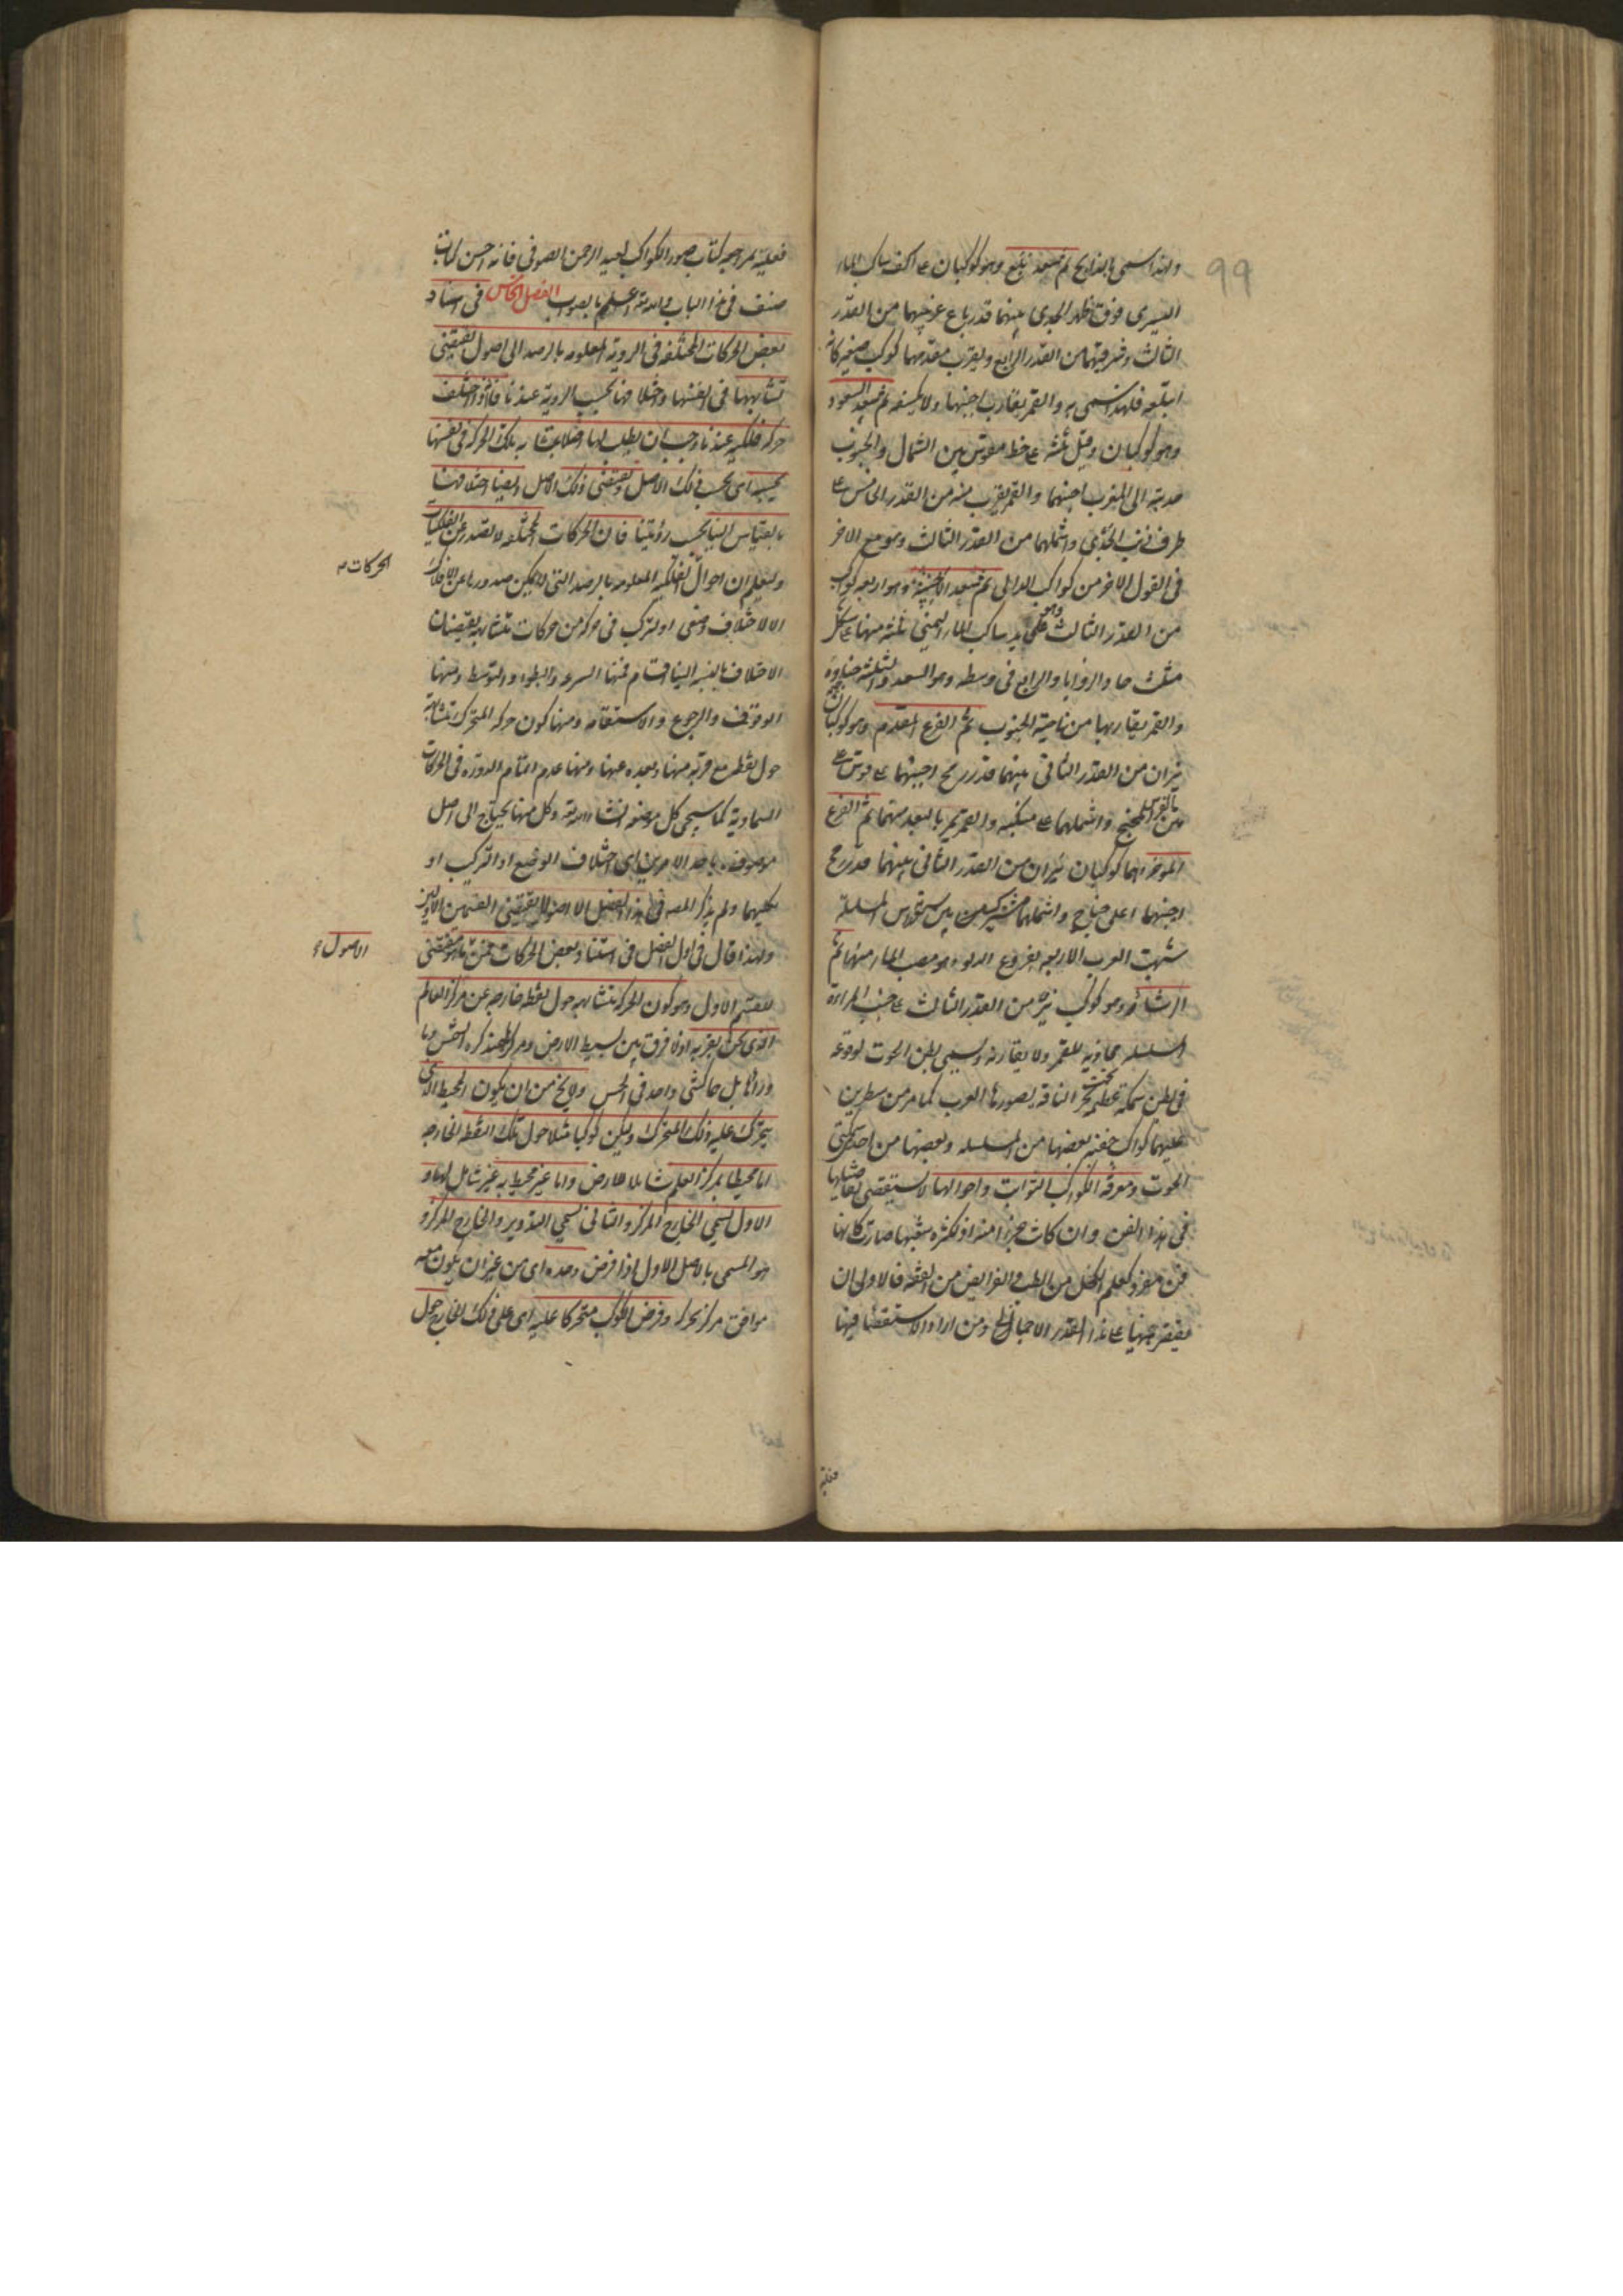 99
ولهذا سمى بالذابح ثم سعد بلع وهو كوكبان على كف ساكب الماء
اليسرى فوق ظهر الجدى بينهما قدر باع غربيهما من القدر
الثالث وشرقيهما من القدر الرابع ويقرب مقدمهما كوكب صغير كانه
ابتلعه فلهذا سمى به والقمر يقارب اجنبها ولا يكسفه ثم سعد السعود
وهو كوكبان وقيل ثلثة على خط مقوس بين الشمال والجنوب
حدبته الى المغرب اجنبهما والقمر يقرب منه من القدر الخامس على
طرف ذنب الجدى واشملهما من القدر الثالث وهو مع الاخر
فى القول الاخر من كواكب الدالى ثم سعد الاخبية وهو اربعة كواكب
من القدر الثالث وهو على يد ساكب الماء اليمنى ثلثة منها على شكل
مثلث حاد الزوايا والرابع فى وسطه وهو السعد والثلثة خباؤه
والقمر يقاربها من ناحية الجنوب ثم الفرغ المقدم وهو كوكبان
نيران من القدر الثانى بينهما قدر رمح اجنبهما على
واشملهما على منكبه والقمر يمر بالبعد منهما ثم الفرغ
المؤخر انهما كوكبان نيران من القدر الثانى بينهما قدر رمح
اجنبهما على جناح واشملهما مشترك بين السلسلة
شبهت العرب الاربعة بفروغ الدلو وهو مصب الماء منها ثم
الرشاء وهو كوكب نير من القدر الثالث على جنب المراة
المسلسلة محاذيه للقمر ولا يقارنه ويسمى بطن الحوت لوقوعه
فى بطن سمكة عظيمة تحت نحر الناقة يصورها العرب كما مر من سطرين
عليهما كواكب خفية بعضها من المسلسلة وبعضها من احد سمكتى
الحوت ومعرفة الكواكب الثوابت واحوالها لا يستقصى تفاصيلها
فى هذا الفن وان كانت جزءا منه اذ لكثرة شعبها صارت كانها
فن مفرد كعلم الكحل من الطب والفرايض من الفقه فالاولى ان
يقتصر منها على هذا القدر الاجمالى ومن اراد الاستقصاء فيها
فعليه
فعليه بمراجعة كتاب صور الكواكب لعبد الرحمن الصوفى فانه احسن كتاب
صنف فى هذا الباب والله اعلم بالصواب الفصل الخامس فى اسناد
بعض الحركات المختلفة فى الروية المعلومة بالرصد الى اصول يقتضى
تشابهها فى انفسها واختلافها بحسب الروية عندنا فاذا اختلف
حركة فلكية عندنا وجب ان يطلب لها اصلا يتشابه تلك الحركة فى نفسها
بحسبه اى بحسب ذلك الاصل ويقتضى ذلك الاصل ايضا اختلافها
بالقياس الينا بحسب رؤيتنا فان الحركات المختلفة لا تصدر عن الفلكيات
وليعلم ان احوال الفلكية المعلومة بالرصد التى لا يمكن صدورها عن الافلاك
الحركات
الا لاختلاف وضعى او لتركب فى حركة من حركات متشابهة يقتضيان
الاختلاف بالنسبة الينا اقسام فمنها السرعة والبطوء والتوسط ومنها
الوقوف والرجوع والاستقامة ومنها كون حركة المتحرك متشابهة
حول نقطة مع قربه منها وبعده عنها ومنها عدم اتمام الدورة فى الحركات
السماوية كما سيجى كل موضعه انشاء الله تعالى وكل منها يحتاج الى اصل
موصوف باحد الامرين اى اختلاف الوضع او التركيب او
كليهما ولم يذكر المصنف فى هذا الفصل الا اصولا يقتضى القسمين الاولين
ولهذا قال فى اول الفصل فى استناد بعض الحركات فمن
الاصول
للقسم الاول وهو كون الحركة متشابهة حول نقطة خارجة عن مركز العالم
الذى نحن بقربه اذ لا فرق بين بسيط الارض ومركزها عند كرة الشمس وما
وراءها بل كشى واحد فى الحس ولا يخ من ان يكون المحيط الذى
يتحرك عليه ذلك المتحرك وليكن كوكبا مثلا حول تلك النقطة الخارجة
اما محيطا بمركز العالم شاملا للارض واما غير محيط به غير شامل لها و
الاول يسمى الخارج المركز والثانى يسمى التدوير والخارج المركز و
هو المسمى بالاصل الاول اذا فرض وحده اى من غير ان يكون معه
موافق مركز تحركه وفرض الكوكب متحركا عليه اى على ذلك الخارج حول